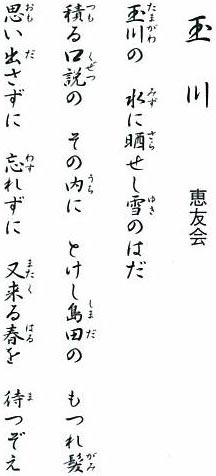 玉川
恵友会
玉川の 水に晒せし雪のはだ
たまがわ みず さら ゆき
積る口説の その内に とけし島田の もつれ髪
つも くぜつ うち しまだ がみ
思い出さずに 忘れずに 又来る春を 待つぞえ
おも だ わす またく はる ま